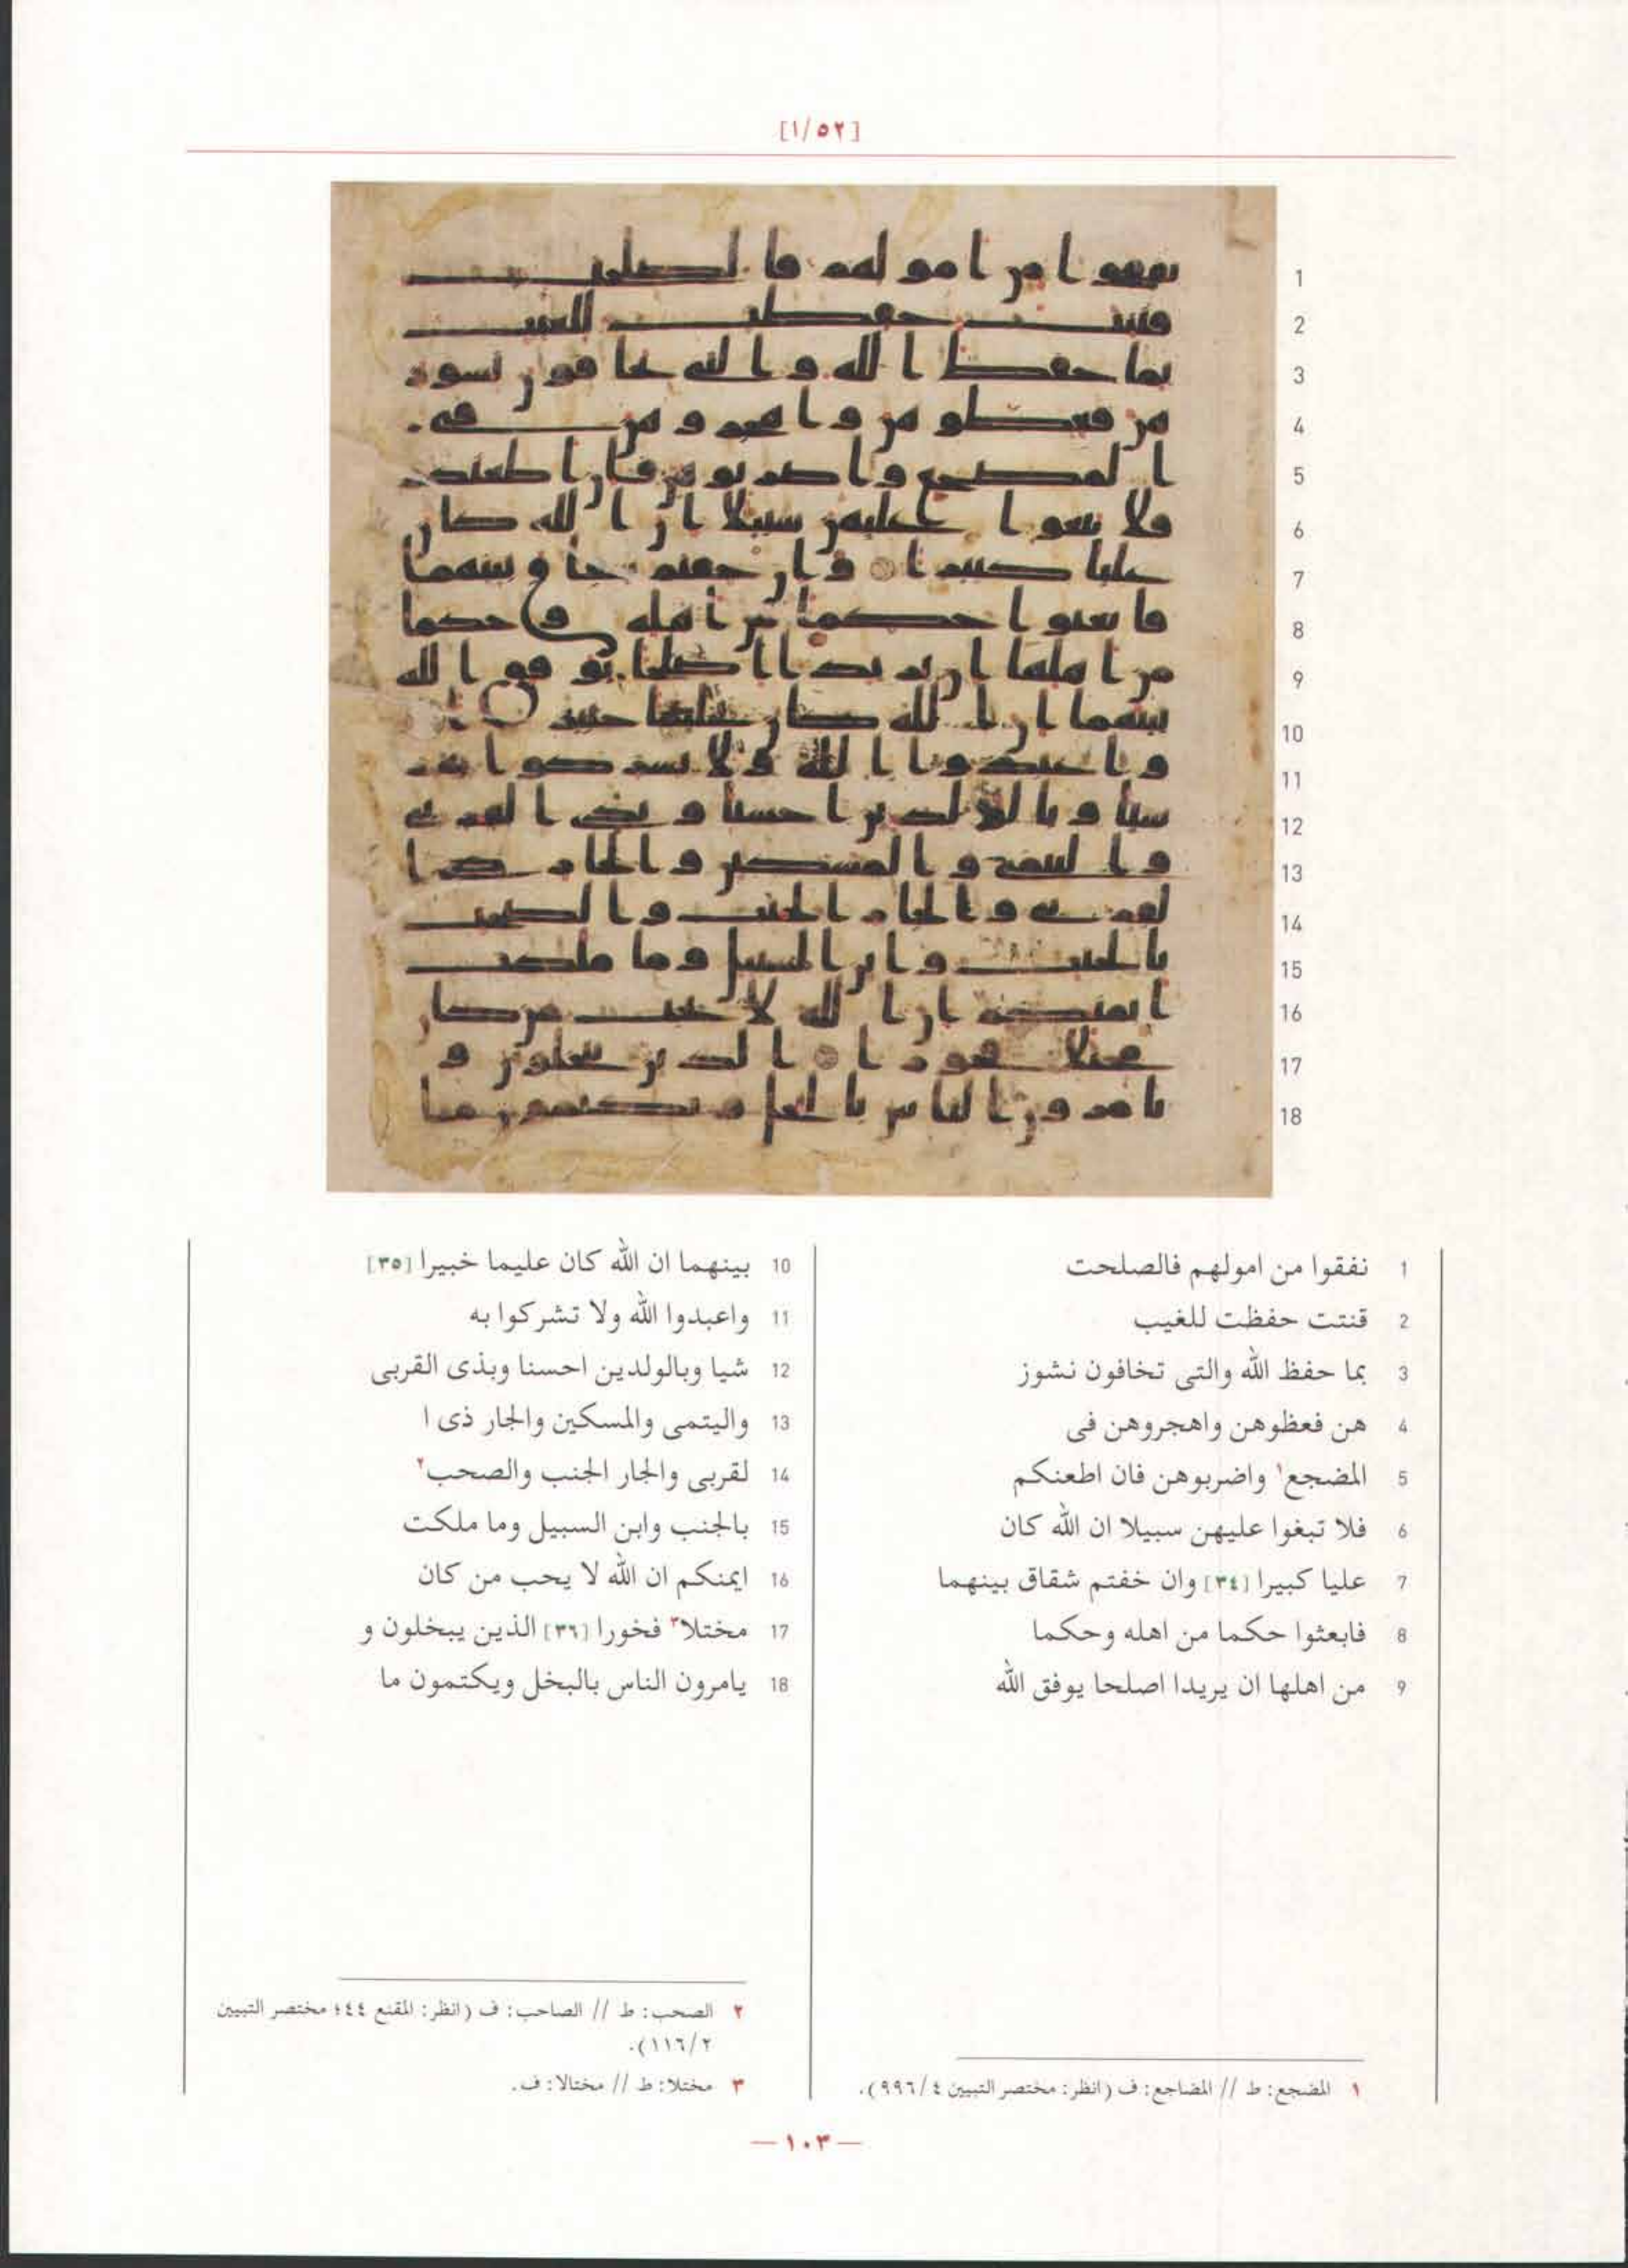 [١/٥٢]
1 نفقوا من امولهم فالصلحت
2 قنتت حفظت للغيب
3 بما حفظ الله والتى تخافون نشوز
4 هن فعظوهن واهجروهن فى
5 المضجع١ واضربوهن فان اطعنكم
6 فلا تبغوا عليهن سبيلا ان الله كان
7 عليا كبيرا [٣٤] وان خفتم شقاق بينهما
8 فابعثوا حكما من اهله وحكما
9 من اهلها ان يريدا اصلحا يوفق الله
10 بينهما ان الله كان عليما خبيرا [٣٥]
11 واعبدوا الله ولا تشركوا به
12 شيا وبالولدين احسنا وبذى القربى
13 واليتمى والمسكين والجار ذى ا
14 لقربى والجار الجنب والصحب٢
15 بالجنب وابن السبيل وما ملكت
16 ايمنكم ان الله لا يحب من كان
17 مختلا٣ فخورا [٣٦] الذين يبخلون و
18 يامرون الناس بالبخل ويكتمون ما
١ المضجع: ط // المضاجع: ف (انظر: مختصر التبيين ٩٩٦/٤).
٢ الصحب: ط // الصاحب: ف (انظر: المقنع ٤٤؛ مختصر التبيين
١١٦/٢).
٣ مختلا: ط // مختالا: ف.
— ١٠٣ —